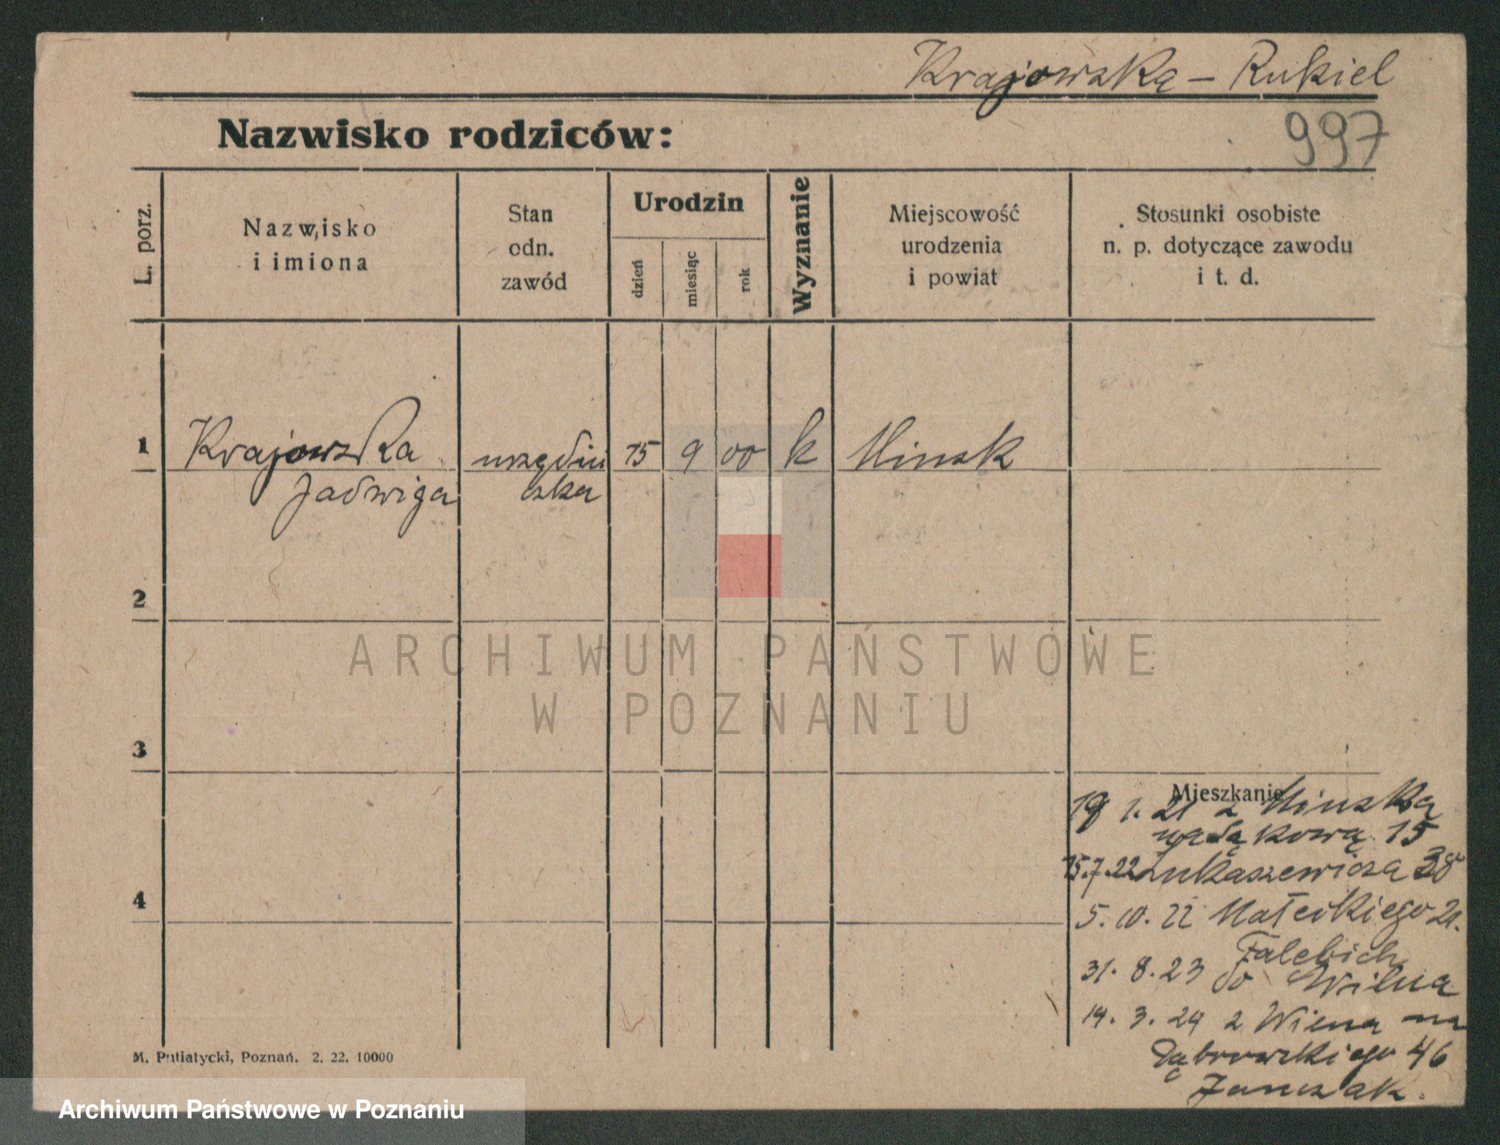 Krajowska – Rukiel
Nazwisko rodziców:
997
L. porz.
Nazwisko
i imiona
Stan
odn.
zawód
Urodzin
dzień
miesiąc
rok
Wyznanie
Miejscowość
urodzenia
i powiat
Stosunki osobiste
n. p. dotyczące zawodu
i t. d.
1
Krajowska urzędni 15 9 00 k Minsk
Jadwiga czka
2
ARCHIWUM PAŃSTWOWE
W POZNANIU
3
Mieszkanie
1. 21 z Minska
15
15.7.22 Łukaszewicza 38
5. 10. 22 Małeckiego 21.
31. 8. 23 do Wilna
14. 3. 24 z Wilna na
Dąbrowskiego 46
Janczak.
4
M. Putiatycki, Poznań, 2. 22. 10000
Archiwum Państwowe w Poznaniu